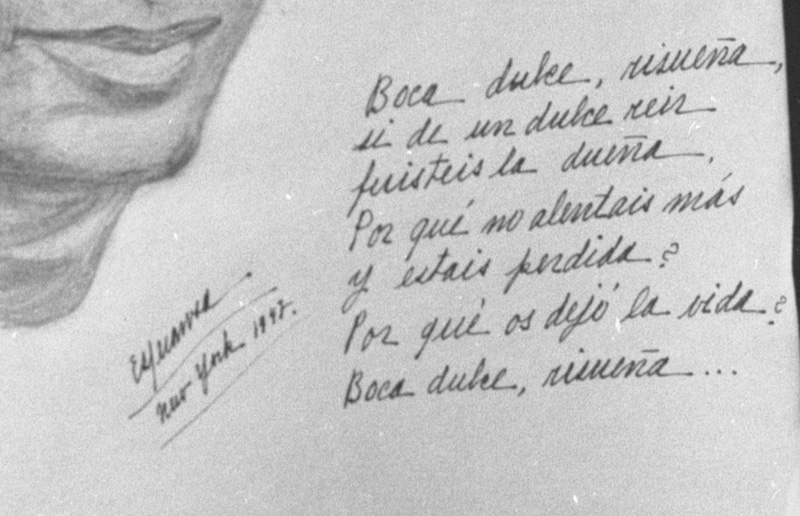 Boca dulce, risueña,
si de un dulce reir
fuisteis la dueña.
Por qué no alentais más
y estais perdida?
Por qué os dejó la vida?
Boca dulce, risueña...
New York 1947.